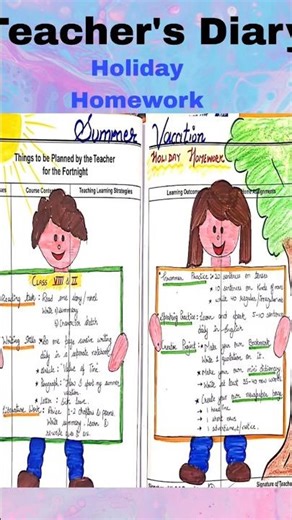 Teacher's Diary
Holiday
Homework
Summer
Things to be Planned by the Teacher
for the Fortnight
Course Conte
Teaching Learning Strategies
Class VIII & IX
Reading task: Read one story/novel
Write summary
Character sketch
Writing Skills
daily in a separate notebook
Article: Value of Time
Paragraph: How I spent my summer
vacation
Letter:
Literature Work: Revise 1-2 chapters & poems
Write summary, learn &
Vacation
Holiday Homework
Learning Outcome
Assignments
Grammar Practice: 20 sentences on tenses
10 sentences on kinds of nouns
Write 40 regular/irregular
Speaking Practice: Learn and speak 5-10 sentences
daily in English
Creative Project: Make your own Bookmark
Write a quotation on it.
Make your own mini dictionary
Write at least 25-40 new words
Create your own newspaper page
1 headline
1 short news
1 advertisement/notice.
Signature of Teacher